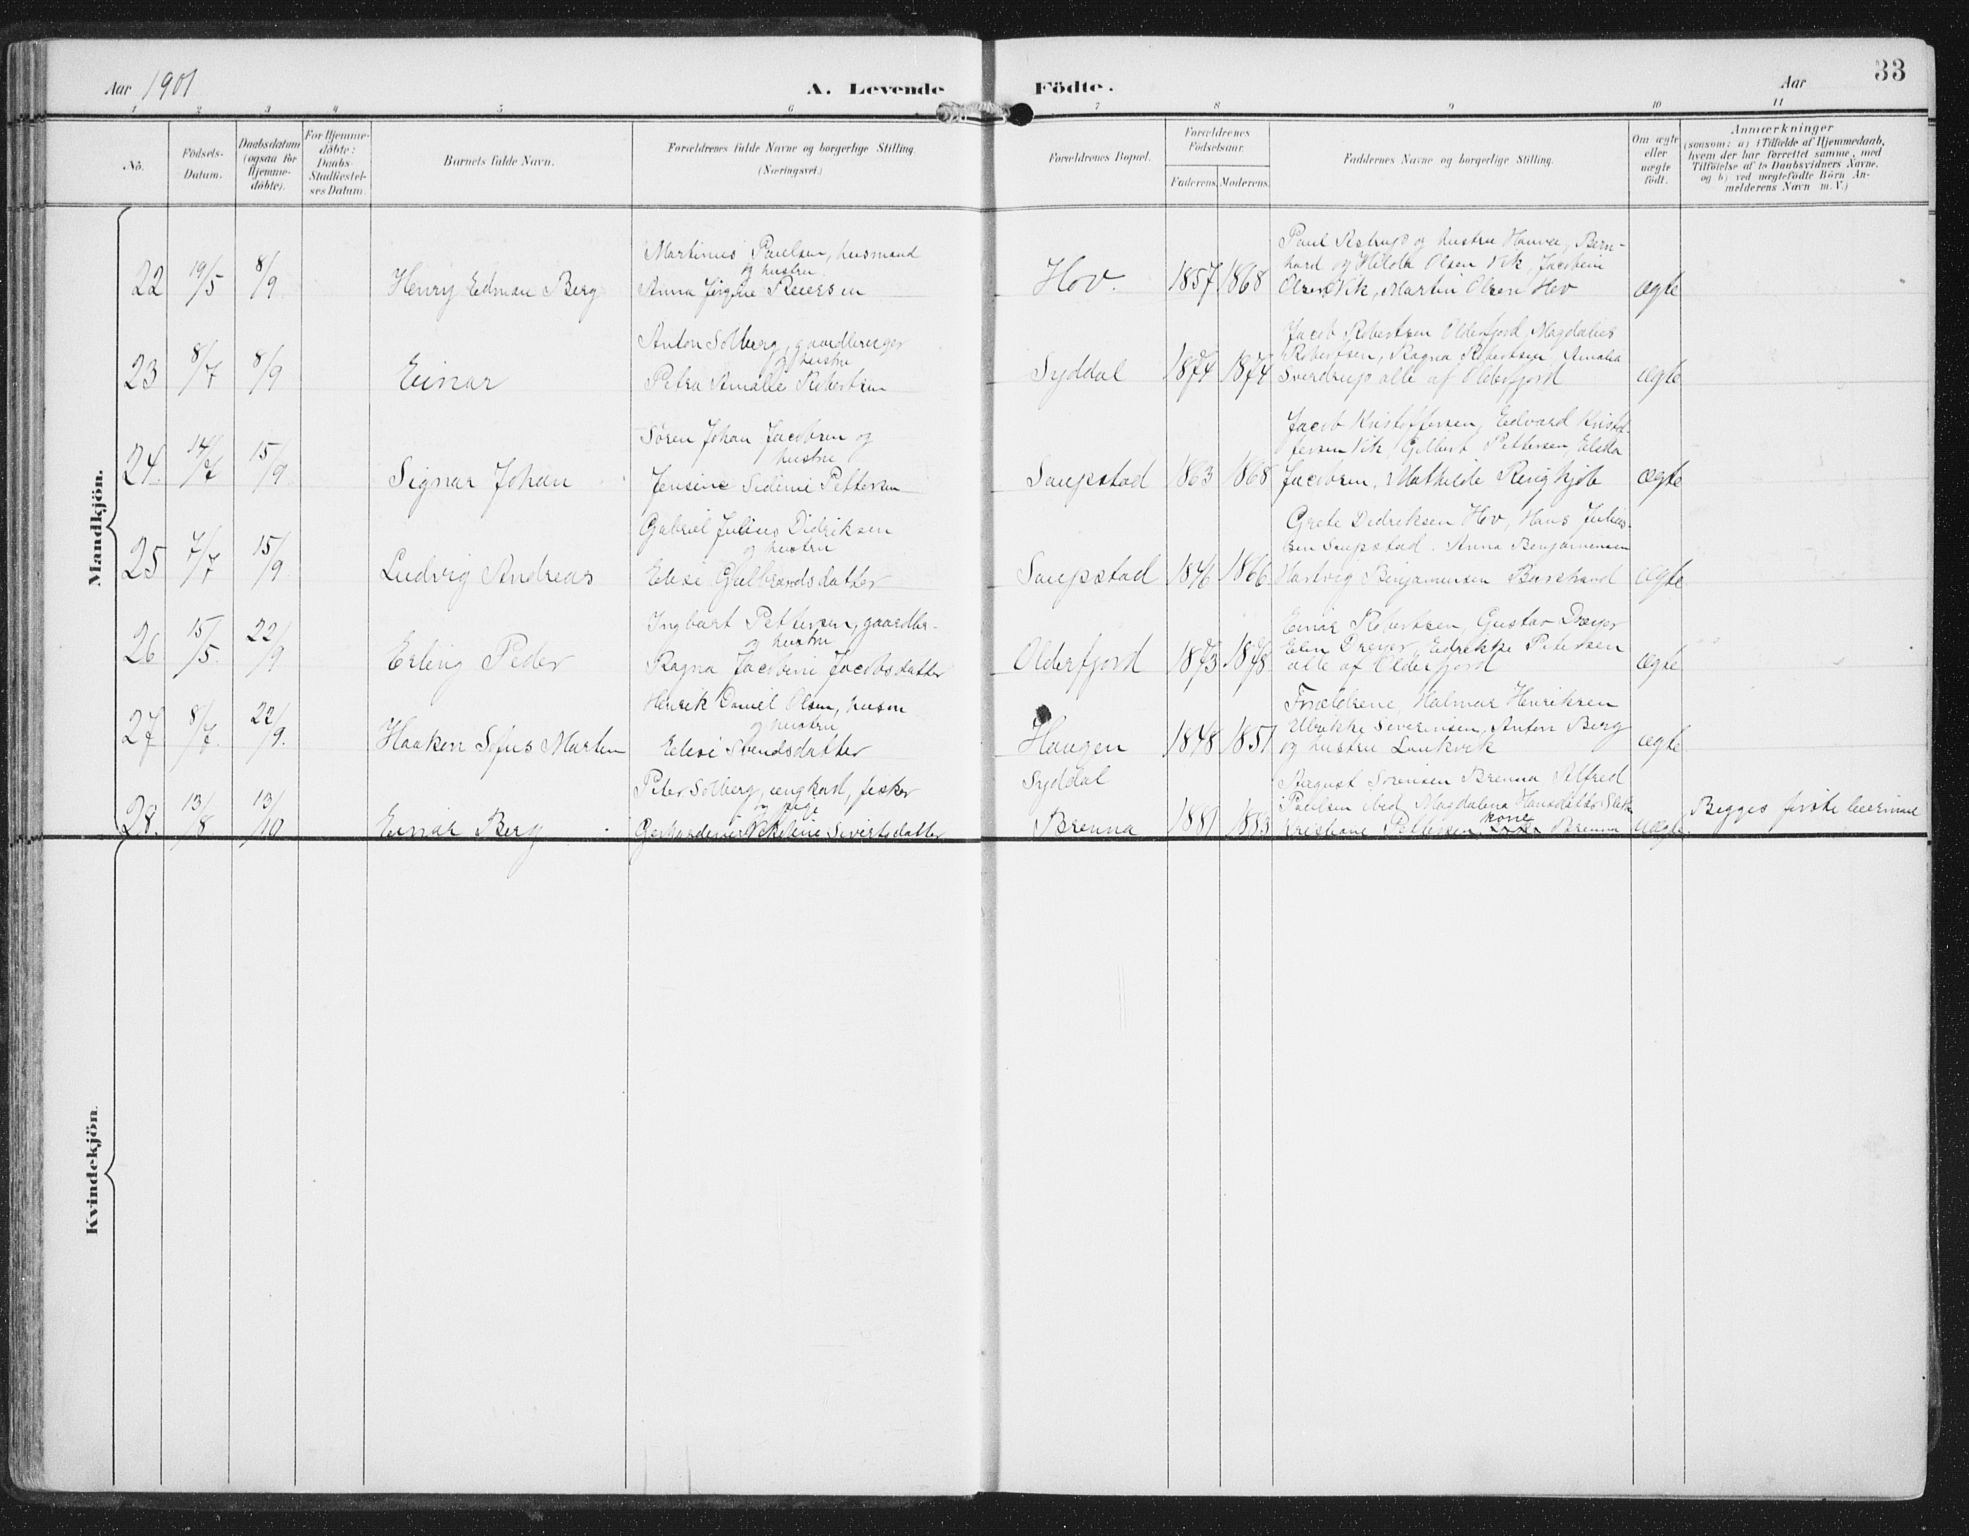 Aar 1901
A. Levende
Födte.
Aar
33
1 2 3 4 5 6 7 8 9 10 11
No.
Födsels-
Datum.
Daabsdatum
(ogsaa for
Hjemme-
döbte).
For Hjemme-
döbte:
Daabs-
Stadfæstel-
ses Datum.
Barnets fulde Navn.
Forældrenes fulde Navne og borgerlige Stilling.
(Næringsvei.)
Forældrenes Bopæl.
Forældrenes
Födselsaar.
Faderens. Moderens.
Faddernes Navne og borgerlige Stilling.
Om ægte
eller
uægte
födt.
Anmærkninger
(saasom: a) i Tilfælde af Hjemmedaab,
hvem der har forrettet samme, med
Tilföielse af to Daabsvidners Navne.
og b) ved uægtefödte Börn An-
melderens Navn m. V.)
Mandkjön.
22 19/5 8/9 Henry Edman Berg
Martinus Paulsen, husmand
og hustru
Anna Jørgine Reiersen
Hov. 1857 1868
Paul Astrup og hustru Hanna, Bern-
hard og Hilda Olsen Vik, Jacobine
Olsen Vik, Martin Olsen Hov
ægte
23 8/7 8/9 Einar
Anton Solberg, gaardbruger
og hustru
Petra Amalie Robertsen
Syddal 1874 1874
Jacob Robertsen Olderfjord, Magdalus
Robertsen, Ragna Robertsen Amalia
Sverdrup alle af Olderfjord
ægte
24. 14/7 15/9 Signar Johan
Søren Johan Jacobsen og
hustru
Jensine Sidenie Pettersen
Saupstad 1863 1868
Jacob Kristoffersen, Edvard Kristof-
fersen Vik, Gilbert Pettersen, Elisa
Jacobsen, Mathilde Ringkjøb
ægte
25 7/7 15/9 Ludvig Andreas
Gabriel Julius Didriksen
og hustru
Elese Gulbrandsdatter
Saupstad 1846 1866
Grete Dedreksen Hov, Hans Julius-
sen Saupstad. Anna Benjaminsen
Hartvig Benjaminsen Barstrand
ægte
26 15/5 22/9 Erling Peder
Ingbart Pettersen, gaardbr-
og hustru
Ragna Jacobine Jacobsdatter
Olderfjord 1873 1878
Einar Robertsen, Gustav Dreyer
Elen Dreyer, Eidrikke Petersen
alle af Olderfjord
ægte
27 8/7. 22/9. Haakon Sofus Martin
Henrik Daniel Olsen, husm
og hustru
Elese Svendsdatter
Haugen 1848 1851
Forældrene, Halmar Henriksen
Ulrikke Severinsen, Anton Berg
og hustru Laukvik
ægte
28. 13/8 13/10 Einar Berg
Peter Solberg, ungkarl, fisker
og pige
Gerhardine Nikoline Sivertsdatter
Syddal
Brenna 1881 1883
August Sørensen Brenna Alfred
Paulsen ibid, Magdalena Hansdatter
Kristiane Pettersen, kone Brenna
uægte
Begges første leiermaal
Kvindekjön.